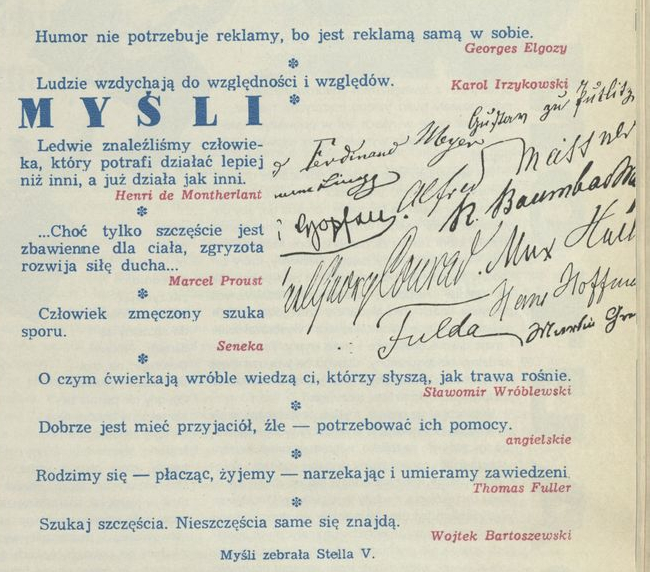 Humor nie potrzebuje reklamy, bo jest reklamą samą w sobie.
Georges Elgozy
*
Ludzie wzdychają do względności i względów.
Karol Irzykowski
*
MYŚLI
Ledwie znaleźliśmy człowie-
ka, który potrafi działać lepiej
niż inni, a już działa jak inni.
Henri de Montherlant
*
...Choć tylko szczęście jest
zbawienne dla ciała, zgryzota
rozwija siłę ducha...
Marcel Proust
*
Człowiek zmęczony szuka
sporu.
Seneka
*
Gustav zu Putlitz
Ferdinand Meyer
Lingg
Alfred Meissner
Hopfen
R. Baumbach
Georg Conrad
Max
Hans Hoffm
Fulda
Martin Gr
O czym ćwierkają wróble wiedzą ci, którzy słyszą, jak trawa rośnie.
Sławomir Wróblewski
*
Dobrze jest mieć przyjaciół, źle — potrzebować ich pomocy.
angielskie
*
Rodzimy się — płacząc, żyjemy — narzekając i umieramy zawiedzeni
Thomas Fuller
*
Szukaj szczęścia. Nieszczęścia same się znajdą.
Wojtek Bartoszewski
Myśli zebrała Stella V.